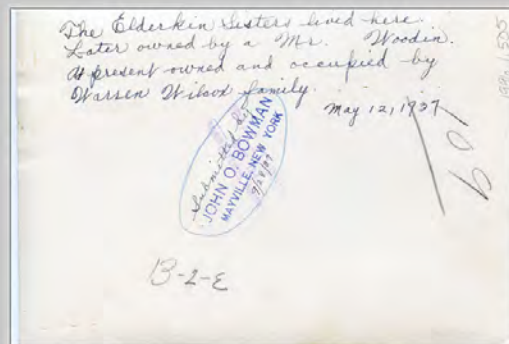 The Elderkin Sisters lived here.
Later owned by a Mr. Woodin.
At present owned and occupied by
Warren Wilcox family.
May 12, 1937
Submitted by
JOHN O. BOWMAN
MAYVILLE, NEW YORK
B-2-E